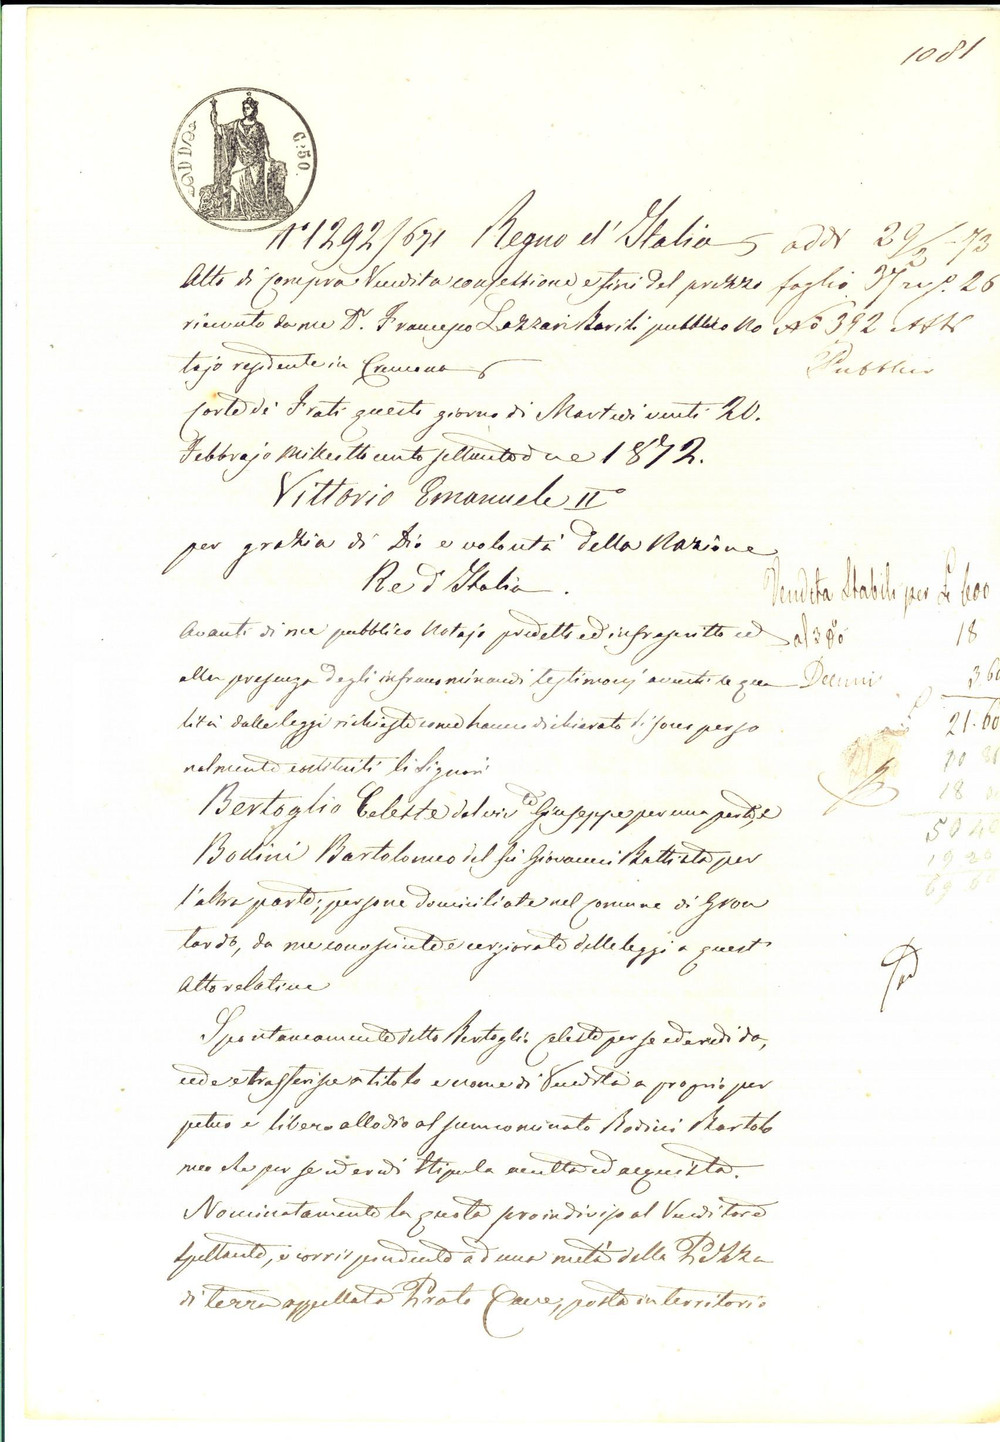 1081
C. 50.
N° 1292/671 Regno d'Italia
Atto di Compra Vendita confessione e fini del prezzo
ricevuto da me Dr. Francesco Lazzari pubblico No
tajo residente in Cremona
Corte de' Frati questo giorno di Martedi venti 20.
Febbrajo Mille otto cento settantadue 1872.
Vittorio Emanuele II°
per grazia di Dio e volontà della Nazione
Re d'Italia.
Avanti di me pubblico Notajo predetto ed infrascritto ed
alla presenza degli infranominandi testimonj aventi le qua
lità dalle leggi richieste come hanno dichiarato si sono perso
nalmente costituiti li Signori
Bertoglio Celeste del viv.te Giuseppe per una parte, e
Bodini Bartolomeo del fu Giovanni Battista per
l'altra parte; persone domiciliate nel Comune di Gron
tardo, da me conosciute e cerziorate delle leggi a quest'
Atto relative
Spontaneamente detto Bertoglio Celeste per se ed eredi dà,
cede e trasferisce a titolo e nome di Vendita a proprio per
petuo e libero allodio al sunnominato Bodini Bartolo
meo che per se ed eredi stipula accetta ed acquista.
Nominatamente la quota proindiviso al Venditore
spettante, e corrispondente ad una metà della Pezza
di terra appellata Prato Cave, posta in territorio
addì 29/2 - 72
foglio 37 26
N° 392 Atti
Pubblici
Vendita Stabili per £ 600
al 3 % 18
Decimi 3 60
21.60
18
50 40
19 20
69 60